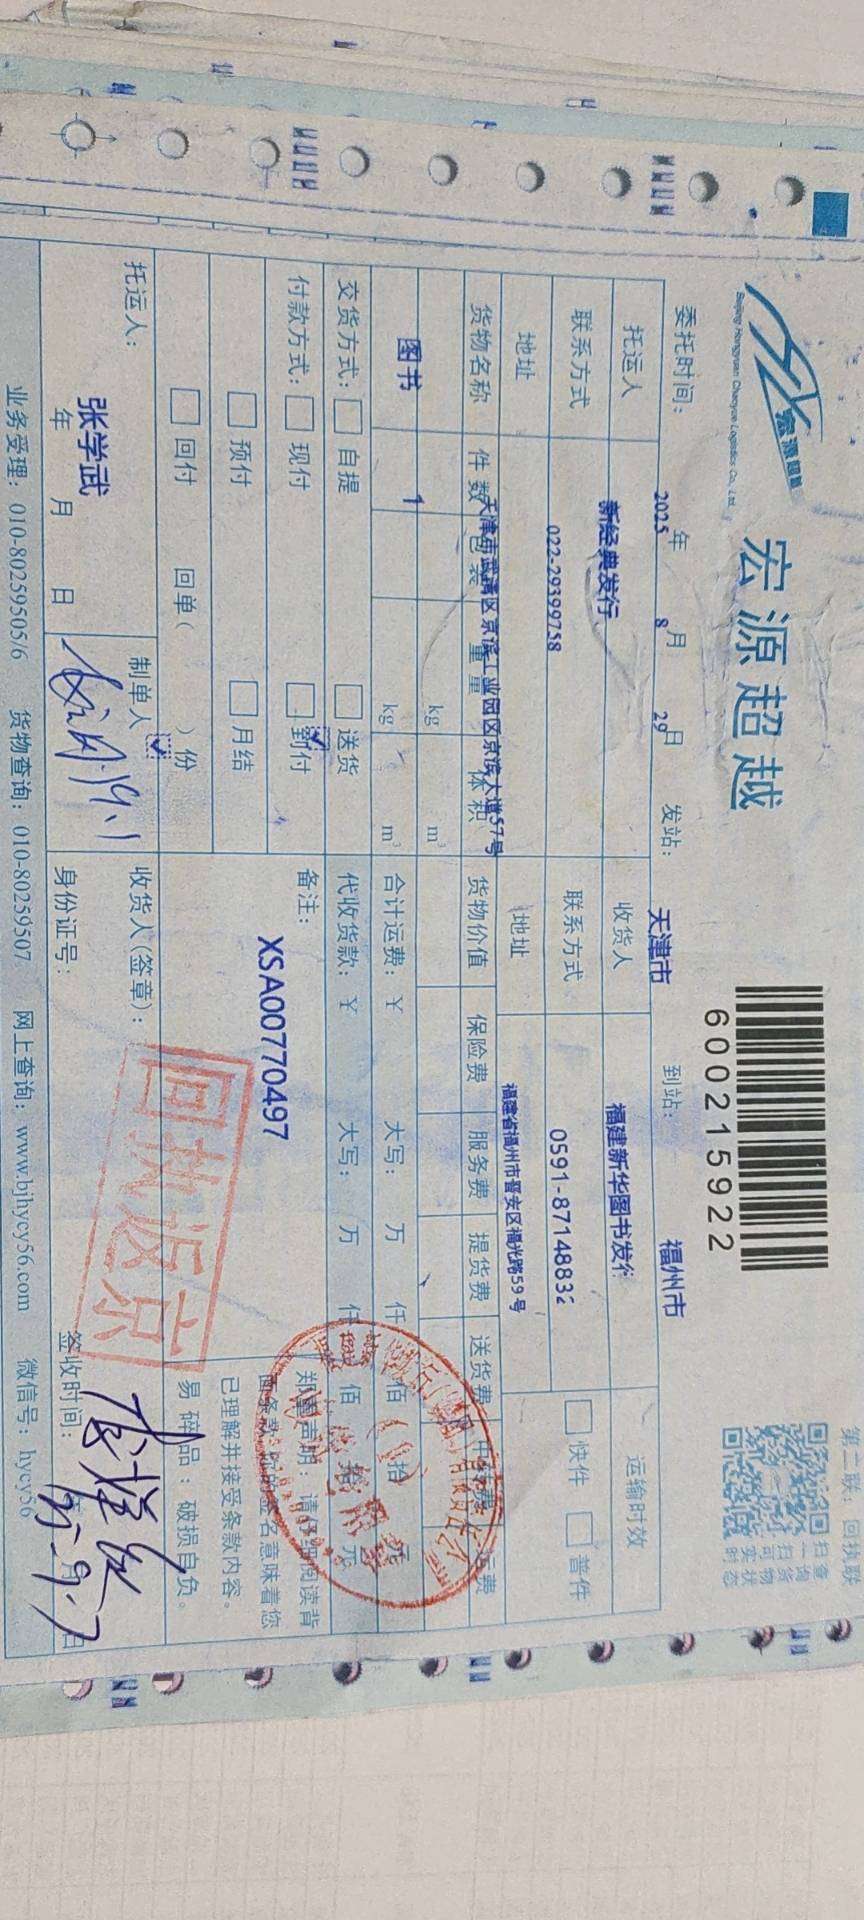 第二联：回执联
宏源超越
Beijing Hongyuan Chaoyue Logistics Co., Ltd.
宏源超越
6002159922
扫一扫可实时
查询货物状态
委托时间： 2025 年 8 月 29 日 发站： 天津市 到站： 福州市
托运人 新经典发行 收货人 福建新华图书发行 运输时效
联系方式 022-29399758 联系方式 0591-8714883 快件 普件
地址 天津市武清区京滨工业园区京滨大道57号 地址 福建省福州市晋安区福光路59号
货物名称 件数 包装 重量 体积 货物价值 保险费 服务费 提货费 送货费
kg m³
图书 1 kg m³ 合计运费：￥ 大写： 万 仟 佰 拾 元
交货方式： 自提 送货 代收货款：￥ 大写： 万 仟 佰 拾 元
付款方式： 现付 到付 备注：
预付 月结 XSA00770497
回付 回单( )份
郑重声明：请仔细阅读背
面条款，您的签名意味着您
已理解并接受条款内容。
易碎品：破损自负。
托运人： 张学武 制单人 收货人(签章)：
回执返京
年 月 日 身份证号： 签收时间： 年 月 日
业务受理：010-80259505/6 货物查询：010-80259507 网上查询：www.bjhycy56.com 微信号：hycy56